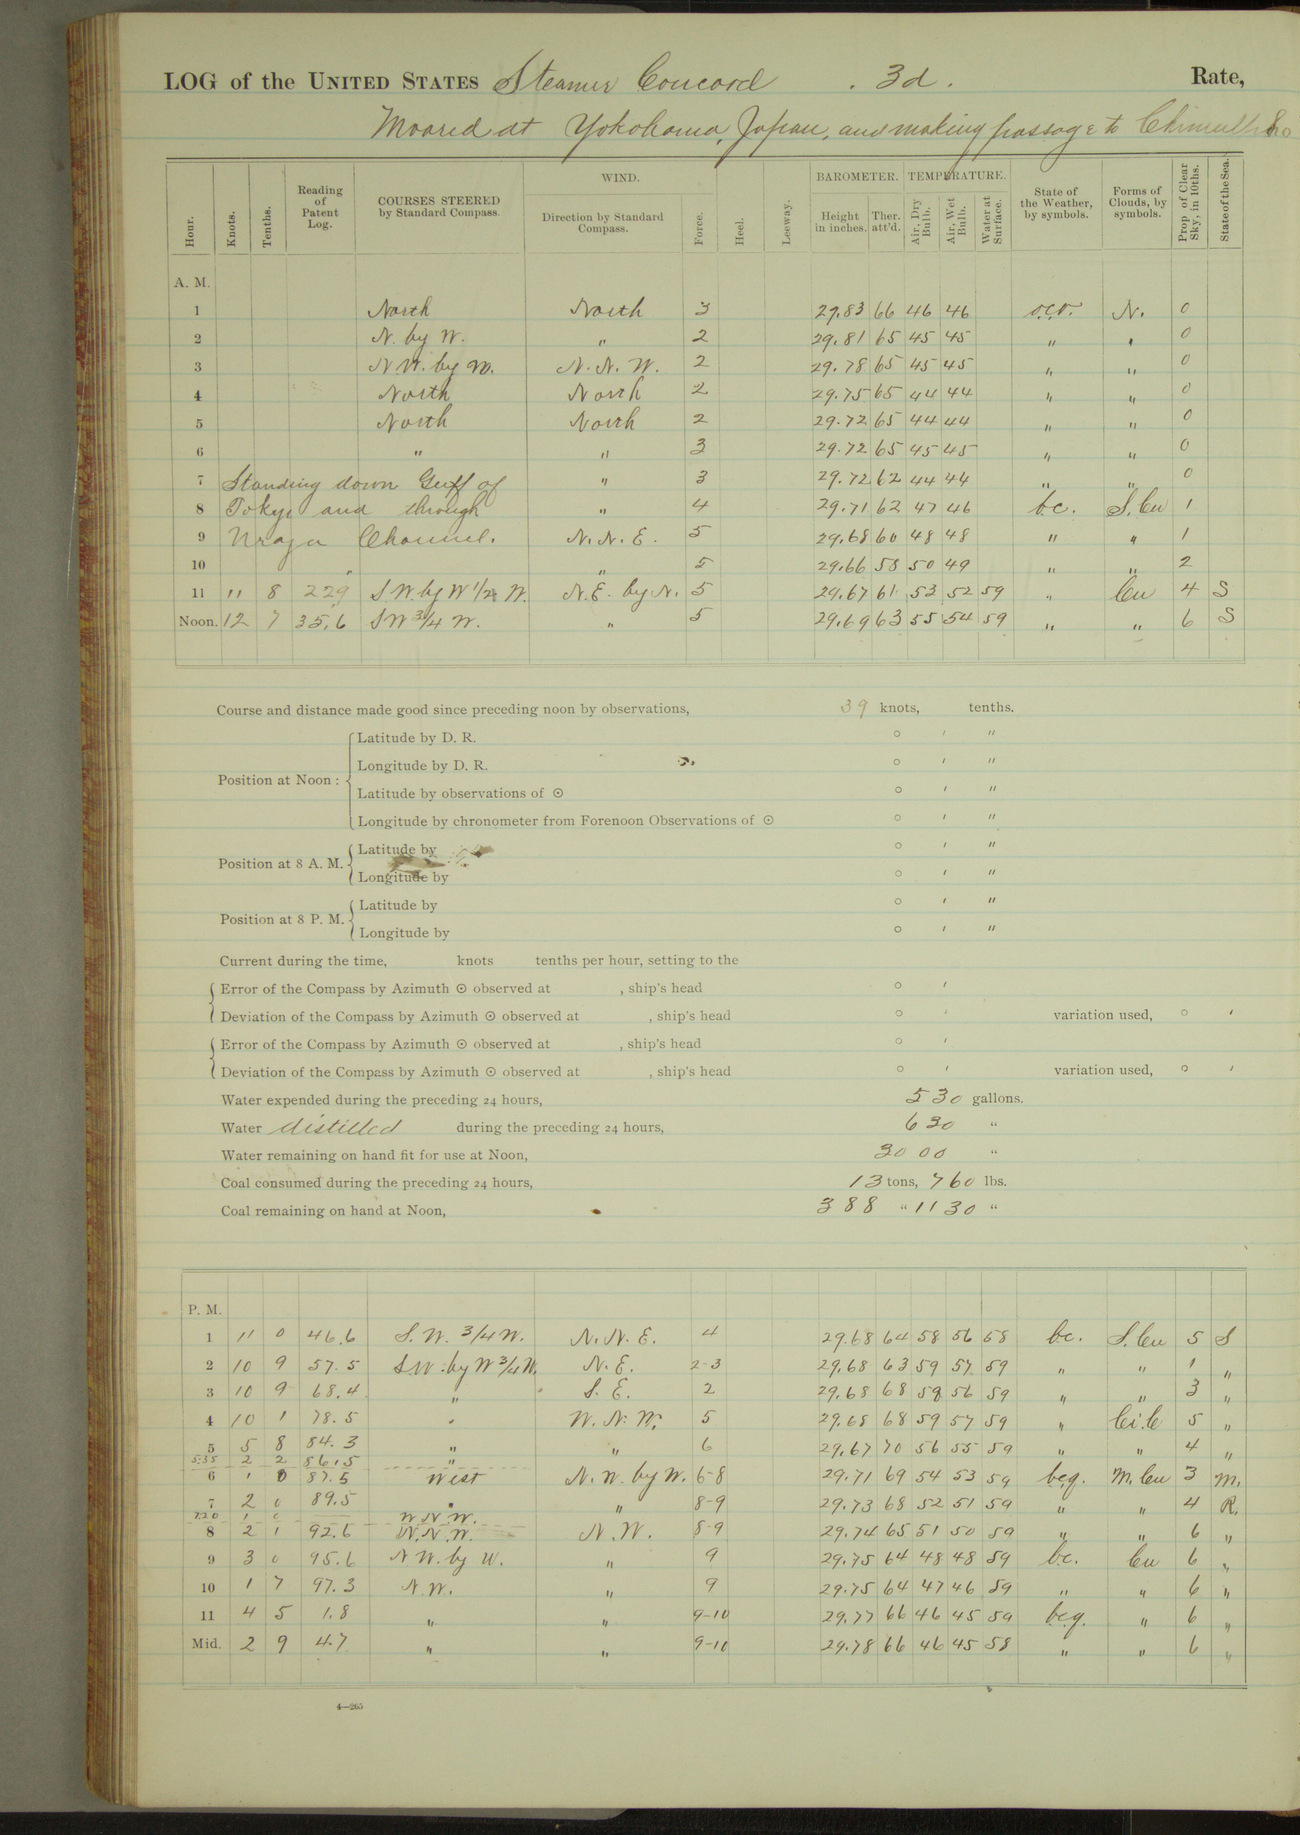 LOG of the UNITED STATES Steamer Concord . 3d . Rate,
Moored at Yokohama, Japan, and making passage to Chimulpho
Hour. Knots. Tenths. Reading of Patent Log. COURSES STEERED by Standard Compass. WIND. Direction by Standard Compass. Force. Heel. Leeway. BAROMETER. Height in inches. Ther. att'd. TEMPERATURE. Air, Dry Bulb. Air, Wet Bulb. Water at Surface. State of the Weather, by symbols. Forms of Clouds, by symbols. Prop of Clear Sky, in 10ths. State of the Sea.
A. M.
1 North North 3 29.83 66 46 46 o.c.r. N. 0
2 N. by W. " 2 29.81 65 45 45 " " 0
3 N W. by W. N. N. W. 2 29.78 65 45 45 " " 0
4 North North 2 29.75 65 44 44 " " 0
5 North North 2 29.72 65 44 44 " " 0
6 " " 3 29.72 65 45 45 " " 0
7 Standing down Gulf of " 3 29.72 62 44 44 " " 0
8 Tokyo and through " 4 29.71 62 47 46 b.c. S. Cu 1
9 Uraga Channel. N. N. E. 5 29.68 60 48 48 " " 1
10 " " 5 29.66 58 50 49 " " 2
11 11 8 22.9 S W. by W 1/2 W. N. E. by N. 5 29.67 61 53 52 59 " Cu 4 S
Noon. 12 7 35.6 S W 3/4 W. " 5 29.69 63 55 54 59 " " 6 S
Course and distance made good since preceding noon by observations, 39 knots, tenths.
Position at Noon :
Latitude by D. R. ° ' "
Longitude by D. R. ° ' "
Latitude by observations of ☉ ° ' "
Longitude by chronometer from Forenoon Observations of ☉ ° ' "
Position at 8 A. M.
Latitude by ° ' "
Longitude by ° ' "
Position at 8 P. M.
Latitude by ° ' "
Longitude by ° ' "
Current during the time, knots tenths per hour, setting to the
Error of the Compass by Azimuth ☉ observed at , ship's head ° '
Deviation of the Compass by Azimuth ☉ observed at , ship's head ° ' variation used, ° '
Error of the Compass by Azimuth ☉ observed at , ship's head ° '
Deviation of the Compass by Azimuth ☉ observed at , ship's head ° ' variation used, ° '
Water expended during the preceding 24 hours, 530 gallons.
Water distilled during the preceding 24 hours, 630 "
Water remaining on hand fit for use at Noon, 3000 "
Coal consumed during the preceding 24 hours, 13 tons, 760 lbs.
Coal remaining on hand at Noon, 388 " 1130 "
P. M.
1 11 0 46.6 S. W. 3/4 W. N. N. E. 4 29.68 64 58 56 58 bc. S. Cu 5 S
2 10 9 57.5 S W. by W 3/4 W. N. E. 2-3 29.68 63 59 57 59 " " 1 "
3 10 9 68.4 " S. E. 2 29.68 68 59 56 59 " " 3 "
4 10 1 78.5 " W. N. W. 5 29.68 68 59 57 59 " Ci. C 5 "
5 5 8 84.3 " " 6 29.67 70 56 55 59 " " 4 "
5:35 2 2 86.5 "
6 1 0 87.5 West N. W. by W. 6-8 29.71 69 54 53 59 bcq. M. Cu 3 M.
7 2 0 89.5 " " 8-9 29.73 68 52 51 59 " " 4 R.
7.20 1 0 W N. W.
8 2 1 92.6 N. N. W. N. W. 8-9 29.74 65 51 50 59 " " 6 "
9 3 0 95.6 N W. by W. " 9 29.75 64 48 48 59 bc. Cu 6 "
10 1 7 97.3 N. W. " 9 29.75 64 47 46 59 " " 6 "
11 4 5 1.8 " " 9-10 29.77 66 46 45 59 bcq. " 6 "
Mid. 2 9 4.7 " " 9-10 29.78 66 46 45 58 " " 6 "
4—265